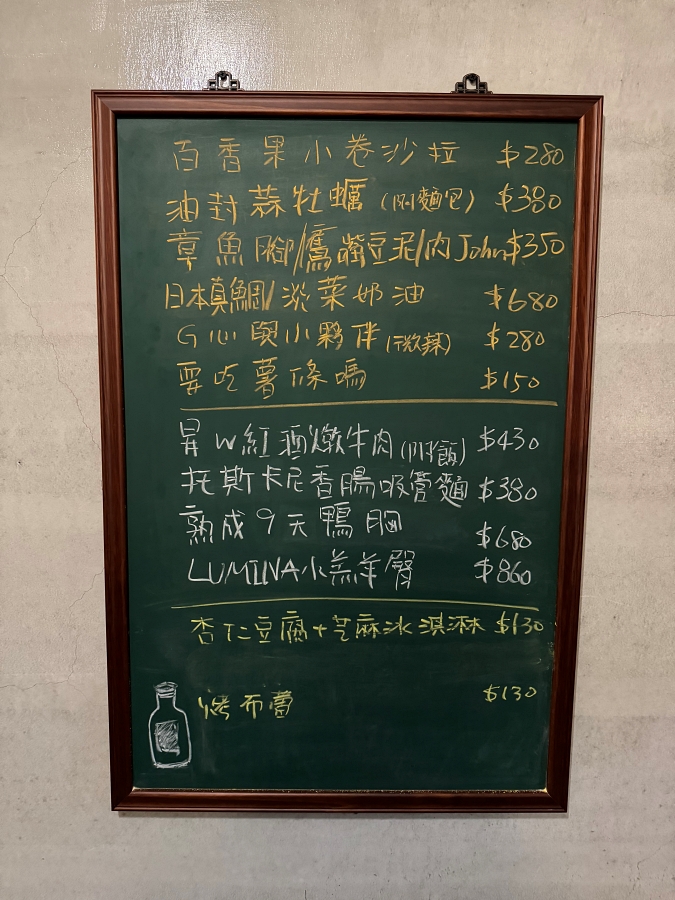 百香果小卷沙拉 $280
油封蒜牡蠣(附麵包) $380
章魚腳/鷹嘴豆泥/肉John $350
日本真鯛/淡菜奶油 $680
G心與小夥伴(微辣) $280
要吃薯條嗎 $150
昇W紅酒燉牛肉(附飯) $430
托斯卡尼香腸吸管麵 $380
熟成9天鴨胸 $680
LUMINA小羔羊臀 $860
杏仁豆腐+芝麻冰淇淋 $130
烤布蕾 $130